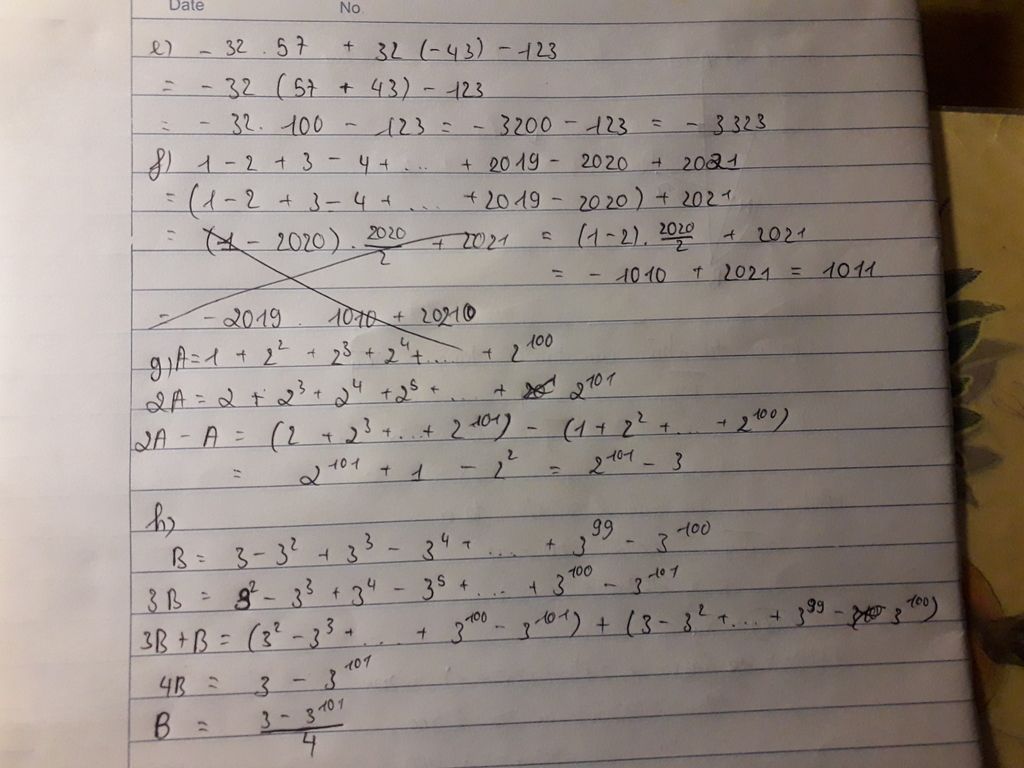 Date No
e) - 32 . 57 + 32 (-43) - 123
= - 32 (57 + 43) - 123
= - 32. 100 - 123 = - 3200 - 123 = - 3323
f) 1 - 2 + 3 - 4 + ... + 2019 - 2020 + 2021
= (1 - 2 + 3 - 4 + ... + 2019 - 2020) + 2021
= (1 - 2020) . 2020/2 + 2021 = (1-2). 2020/2 + 2021
= - 1010 + 2021 = 1011
= - 2019 . 1010 + 2021
g) A = 1 + 2² + 2³ + 2⁴ + ... + 2¹⁰⁰
2A = 2 + 2³ + 2⁴ + 2⁵ + ... + 2¹⁰¹
2A - A = (2 + 2³ + ... + 2¹⁰¹) - (1 + 2² + ... + 2¹⁰⁰)
= 2¹⁰¹ + 1 - 2² = 2¹⁰¹ - 3
h)
B = 3 - 3² + 3³ - 3⁴ + ... + 3⁹⁹ - 3¹⁰⁰
3B = 3² - 3³ + 3⁴ - 3⁵ + ... + 3¹⁰⁰ - 3¹⁰¹
3B + B = (3² - 3³ + ... + 3¹⁰⁰ - 3¹⁰¹) + (3 - 3² + ... + 3⁹⁹ - 3¹⁰⁰)
4B = 3 - 3¹⁰¹
B = (3 - 3¹⁰¹)/4